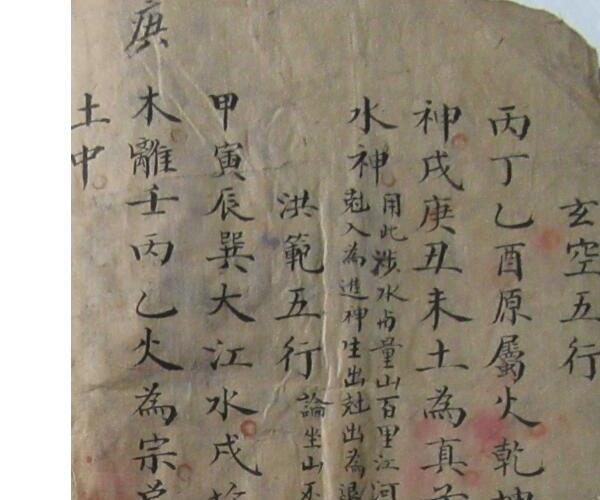 玄空五行
丙丁乙酉原屬火乾坤
神戌庚丑未土為真
水神
用此涉水与量山百里江河
尅入為進神生出尅出為退
洪範五行
論坐山不
甲寅辰巽大江水戌
木離壬丙乙火為宗
庚
土中